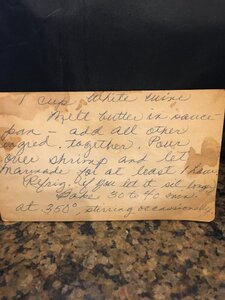 1 cup White wine
Melt butter in sauce
pan - add all other
ingred. together. Pour
over shrimp and let
marinade for at least 1 hour.
Refrig. if you let it sit longer
Bake 30 to 40 min.
at 350°, stirring occasionally